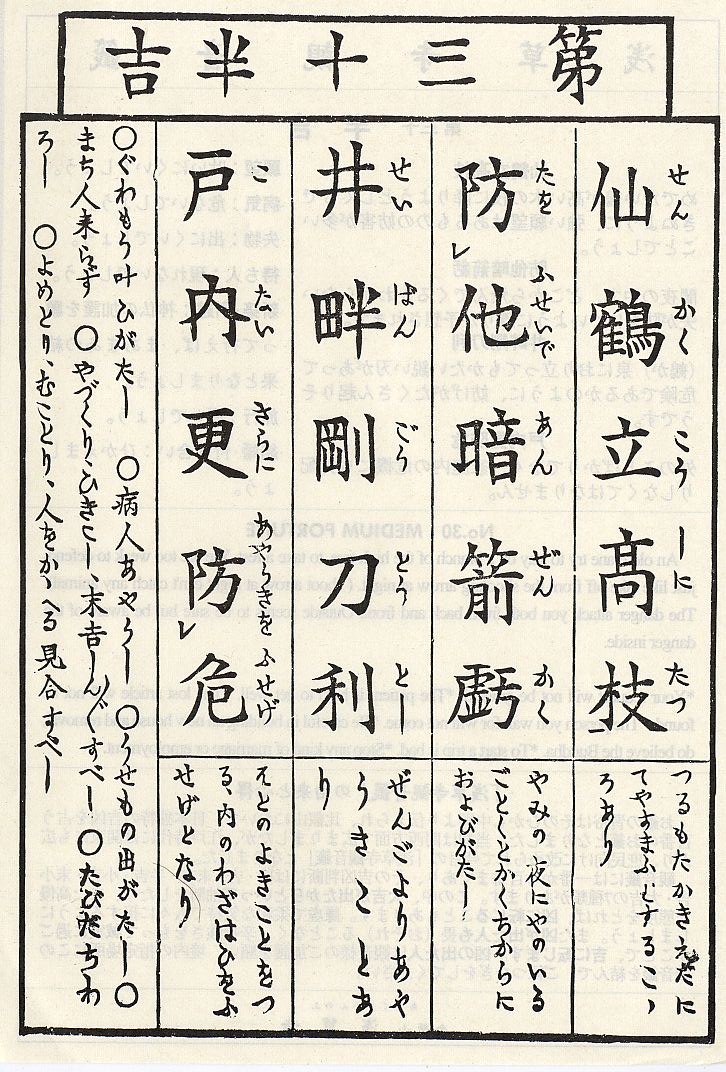 第三十半吉
仙鶴立高枝
せんかくこうしにたつ
つるもたかきえだに
てやすまふとするこゝ
ろあり
防レ他暗箭虧
たをふせいであんぜんかく
やみの夜にやのいる
ごとくとかくちからに
およびがたし
井畔剛刀利
せいはんごうとうとし
ぜんごよりあや
うきことあ
り
戸内更防レ危
こないさらにあやうきをふせげ
そとのよきことをつ
る、内のわざはひをふ
せげとなり
○ぐわもう叶ひがたし ○病人あやうし ○うせもの出がたし ○
まち人来らず ○やづくり、ひきこし、末吉しん〴〵すべし ○たびだちわ
ろし ○よめとり、むことり、人をかゝへる見合すべし